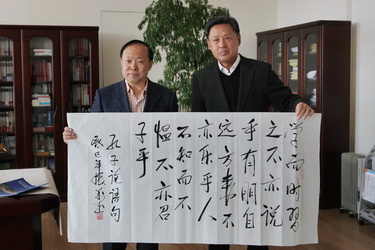 学而时習
之不亦说
乎有朋自
远方来不
亦乐乎人
不知而不
愠不亦君
子乎
孔子说语句
癸巳年振